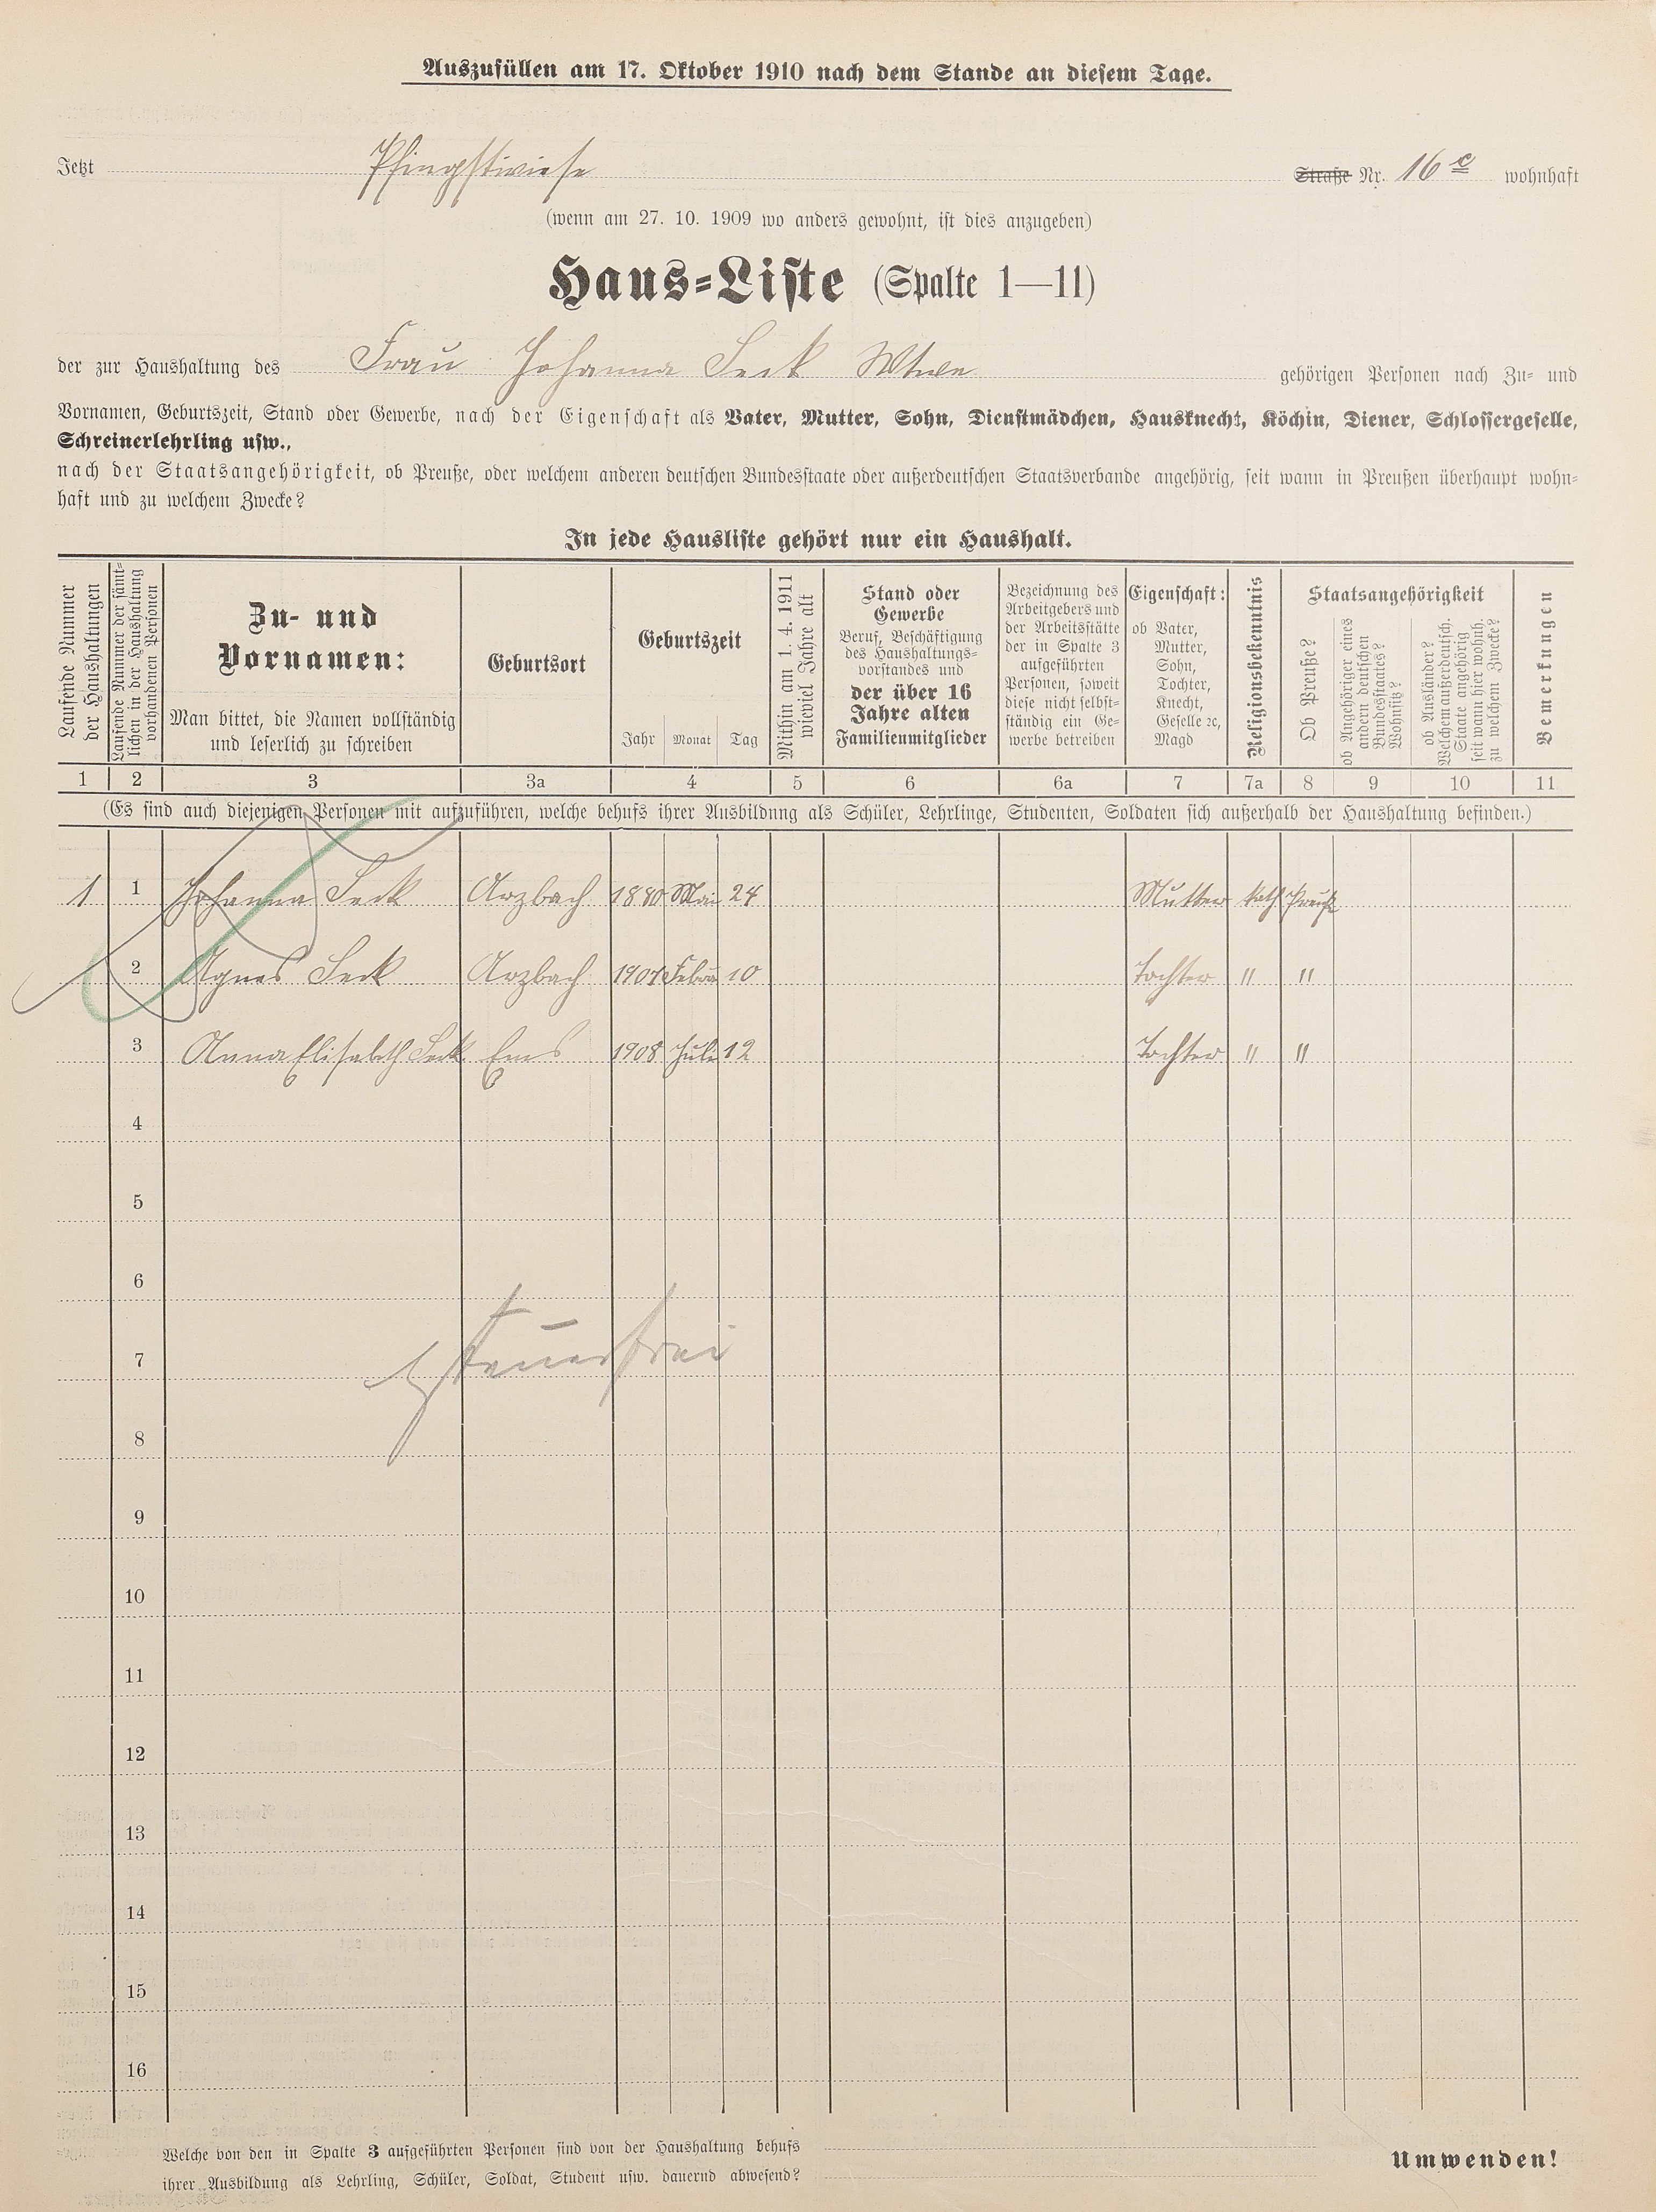 Auszufüllen am 17. Oktober 1910 nach dem Stande an diesem Tage.
Jetzt Pfingstwiese Straße Nr. 16 c wohnhaft
(wenn am 27. 10. 1909 wo anders gewohnt, ist dies anzugeben)
Haus-Liste (Spalte 1—11)
der zur Haushaltung des Frau Johanna Seck Wtwe gehörigen Personen nach Zu- und
Vornamen, Geburtszeit, Stand oder Gewerbe, nach der Eigenschaft als Vater, Mutter, Sohn, Dienstmädchen, Hausknecht, Köchin, Diener, Schlossergeselle,
Schreinerlehrling usw.,
nach der Staatsangehörigkeit, ob Preuße, oder welchem anderen deutschen Bundesstaate oder außerdeutschen Staatsverbande angehörig, seit wann in Preußen überhaupt wohn-
haft und zu welchem Zwecke?
In jede Hausliste gehört nur ein Haushalt.
Laufende Nummer
der Haushaltungen
Laufende Nummer der sämt-
lichen in der Haushaltung
vorhandenen Personen
Zu- und
Vornamen:
Man bittet, die Namen vollständig
und leserlich zu schreiben
Geburtsort
Geburtszeit
Jahr Monat Tag
Mithin am 1. 4. 1911
wieviel Jahre alt
Stand oder
Gewerbe
Beruf, Beschäftigung
des Haushaltungs-
vorstandes und
der über 16
Jahre alten
Familienmitglieder
Bezeichnung des
Arbeitgebers und
der Arbeitsstätte
der in Spalte 3
aufgeführten
Personen, soweit
diese nicht selbst-
ständig ein Ge-
werbe betreiben
Eigenschaft:
ob Vater,
Mutter,
Sohn,
Tochter,
Knecht,
Geselle ꝛc,
Magd
Religionsbekenntnis
Staatsangehörigkeit
Ob Preuße?
ob Angehöriger eines
andern deutschen
Bundesstaates?
Wohnsitz?
ob Ausländer?
Welchem außerdeutsch.
Staate angehörig
seit wann hier wohnh.
zu welchem Zwecke?
Bemerkungen
1 2 3 3a 4 5 6 6a 7 7a 8 9 10 11
(Es sind auch diejenigen Personen mit aufzuführen, welche behufs ihrer Ausbildung als Schüler, Lehrlinge, Studenten, Soldaten sich außerhalb der Haushaltung befinden.)
1 1 Johanna Seck Arzbach 1880 Mai 24 Mutter kath Preuße
2 Agnes Seck Arzbach 10 Tochter " "
3 Anna Elisabeth Seck Ems 1908 Juli 12 Tochter " "
4
5
6
steuerfrei
7
8
9
10
11
12
13
14
15
16
Welche von den in Spalte 3 aufgeführten Personen sind von der Haushaltung behufs
ihrer Ausbildung als Lehrling, Schüler, Soldat, Student usw. dauernd abwesend?
Umwenden!